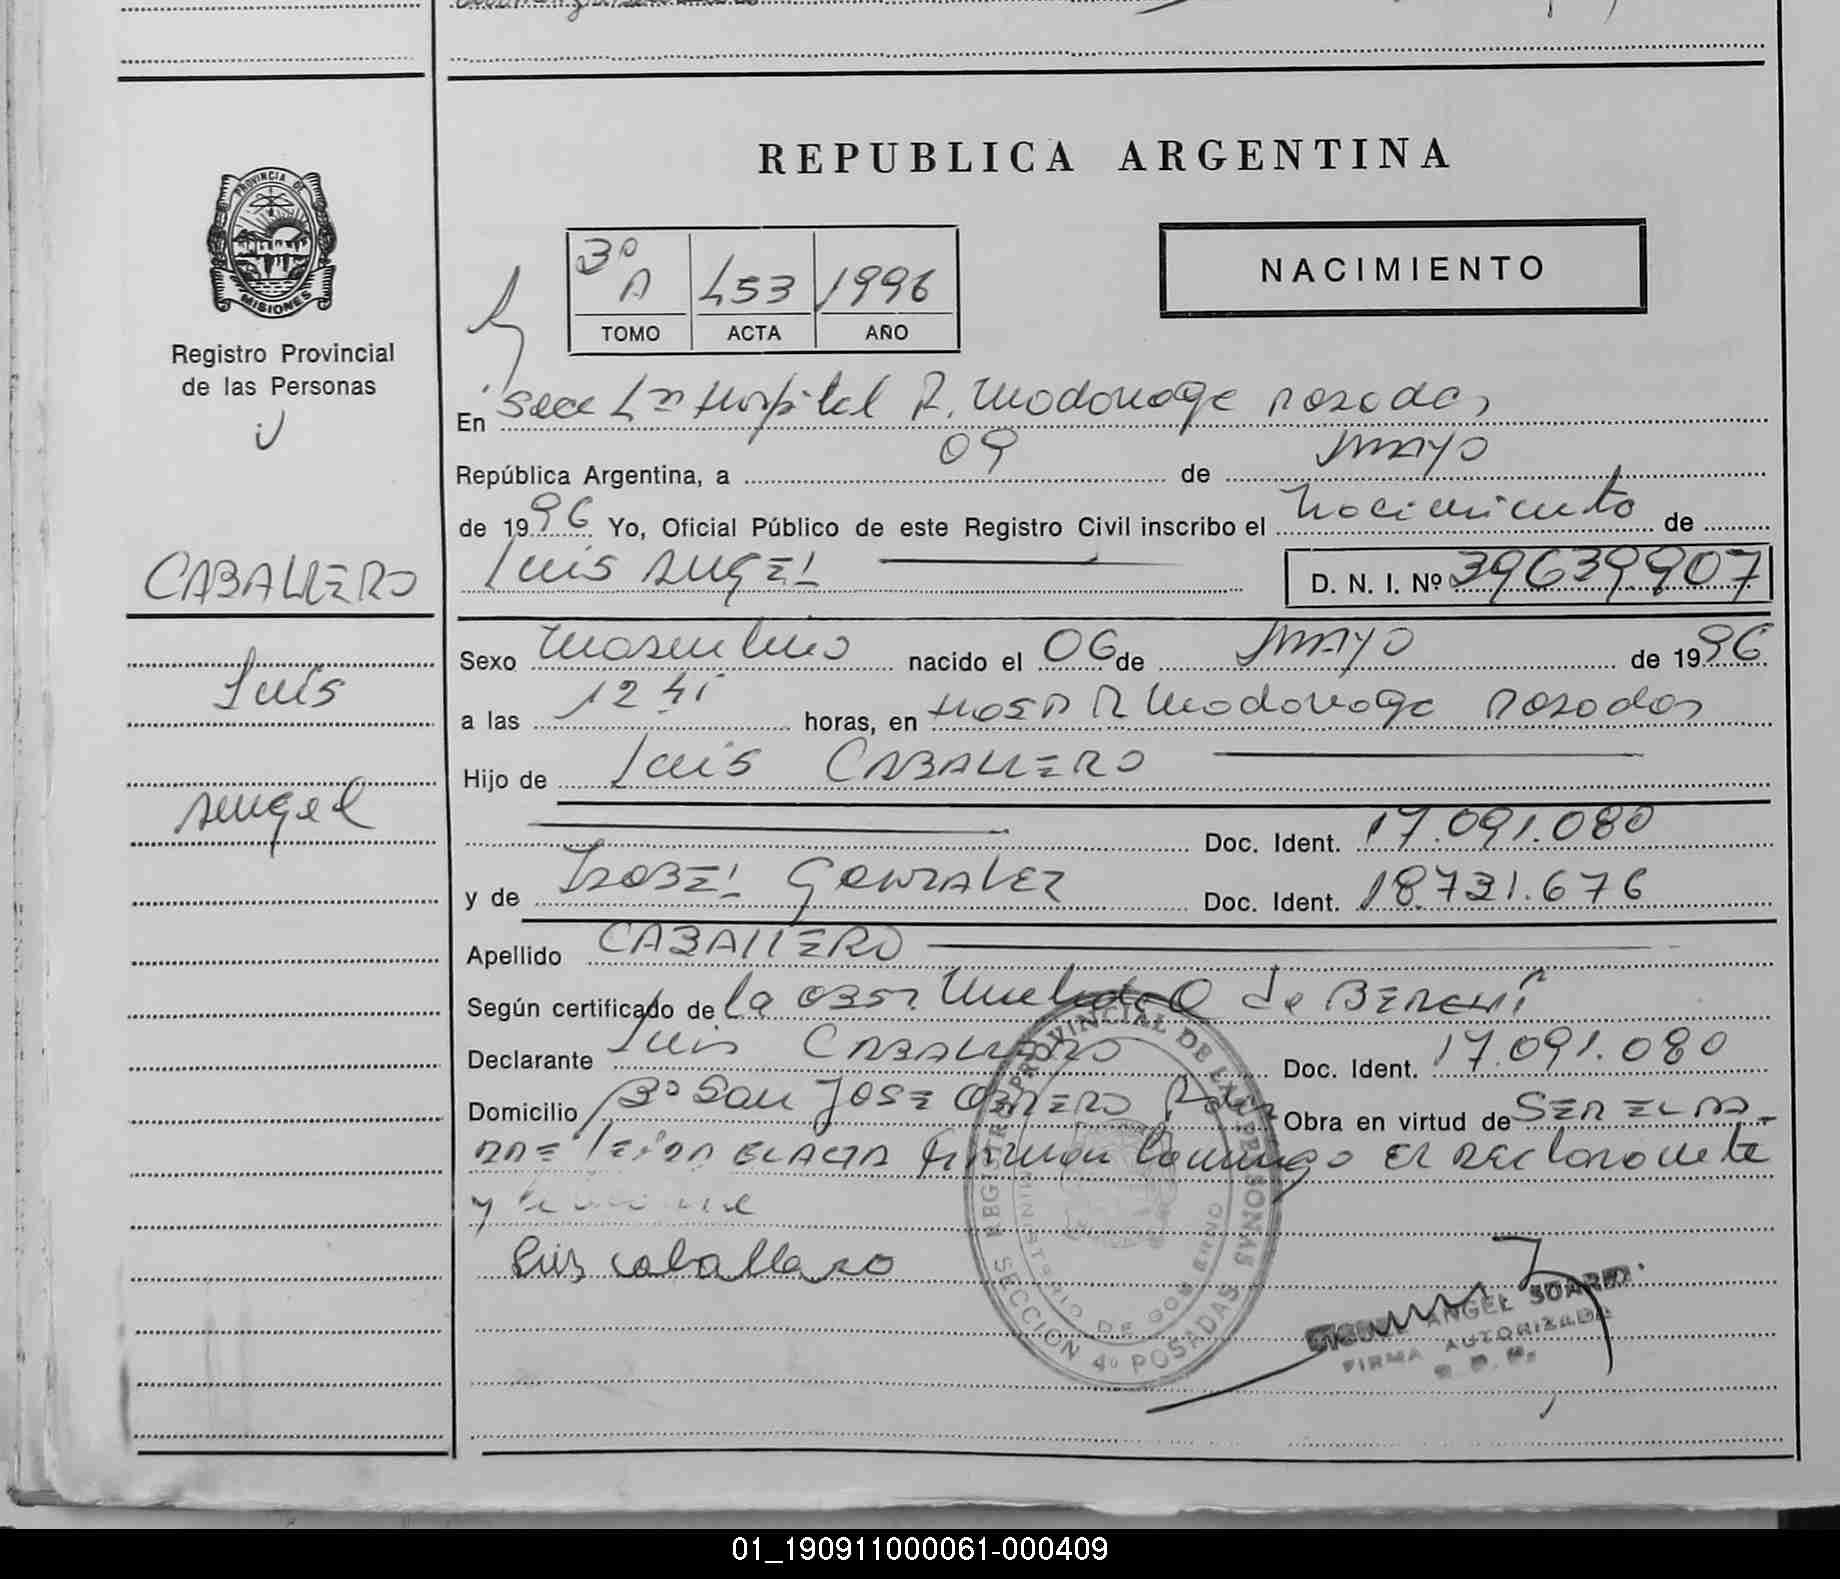 REPUBLICA ARGENTINA
PROVINCIA DE
MISIONES
Registro Provincial
de las Personas
3º A 453 1996
TOMO ACTA AÑO
NACIMIENTO
En Secc Hospital R. Madariaga Posadas
República Argentina, a 09 de mayo
de 1996 Yo, Oficial Público de este Registro Civil inscribo el nacimiento de
CABALLERO
Luis Angel
Luis ANGEL D. N. I. Nº 39639907
Sexo Masculino nacido el 06 de mayo de 1996
a las 12 horas, en Hosp R Madariaga Posadas
Hijo de Luis CABALLERO
Doc. Ident. 17.091.080
y de ISABEL GONZALEZ Doc. Ident. 18.731.676
Apellido CABALLERO
Según certificado de la OBST de
Declarante Luis CABALLERO Doc. Ident. 17.091.080
Domicilio Bº San JOSE OBRERO Obra en virtud de SER EL PA-
DRE LEIDA EL ACTA firman conmigo el declarante
y
Luis caballero
REGISTRO PROVINCIAL DE LAS PERSONAS
MINISTERIO DE GOBIERNO
SECCION 4º POSADAS
ANGEL SUAREZ
FIRMA AUTORIZADA
R. P. P.
01_190911000061-000409